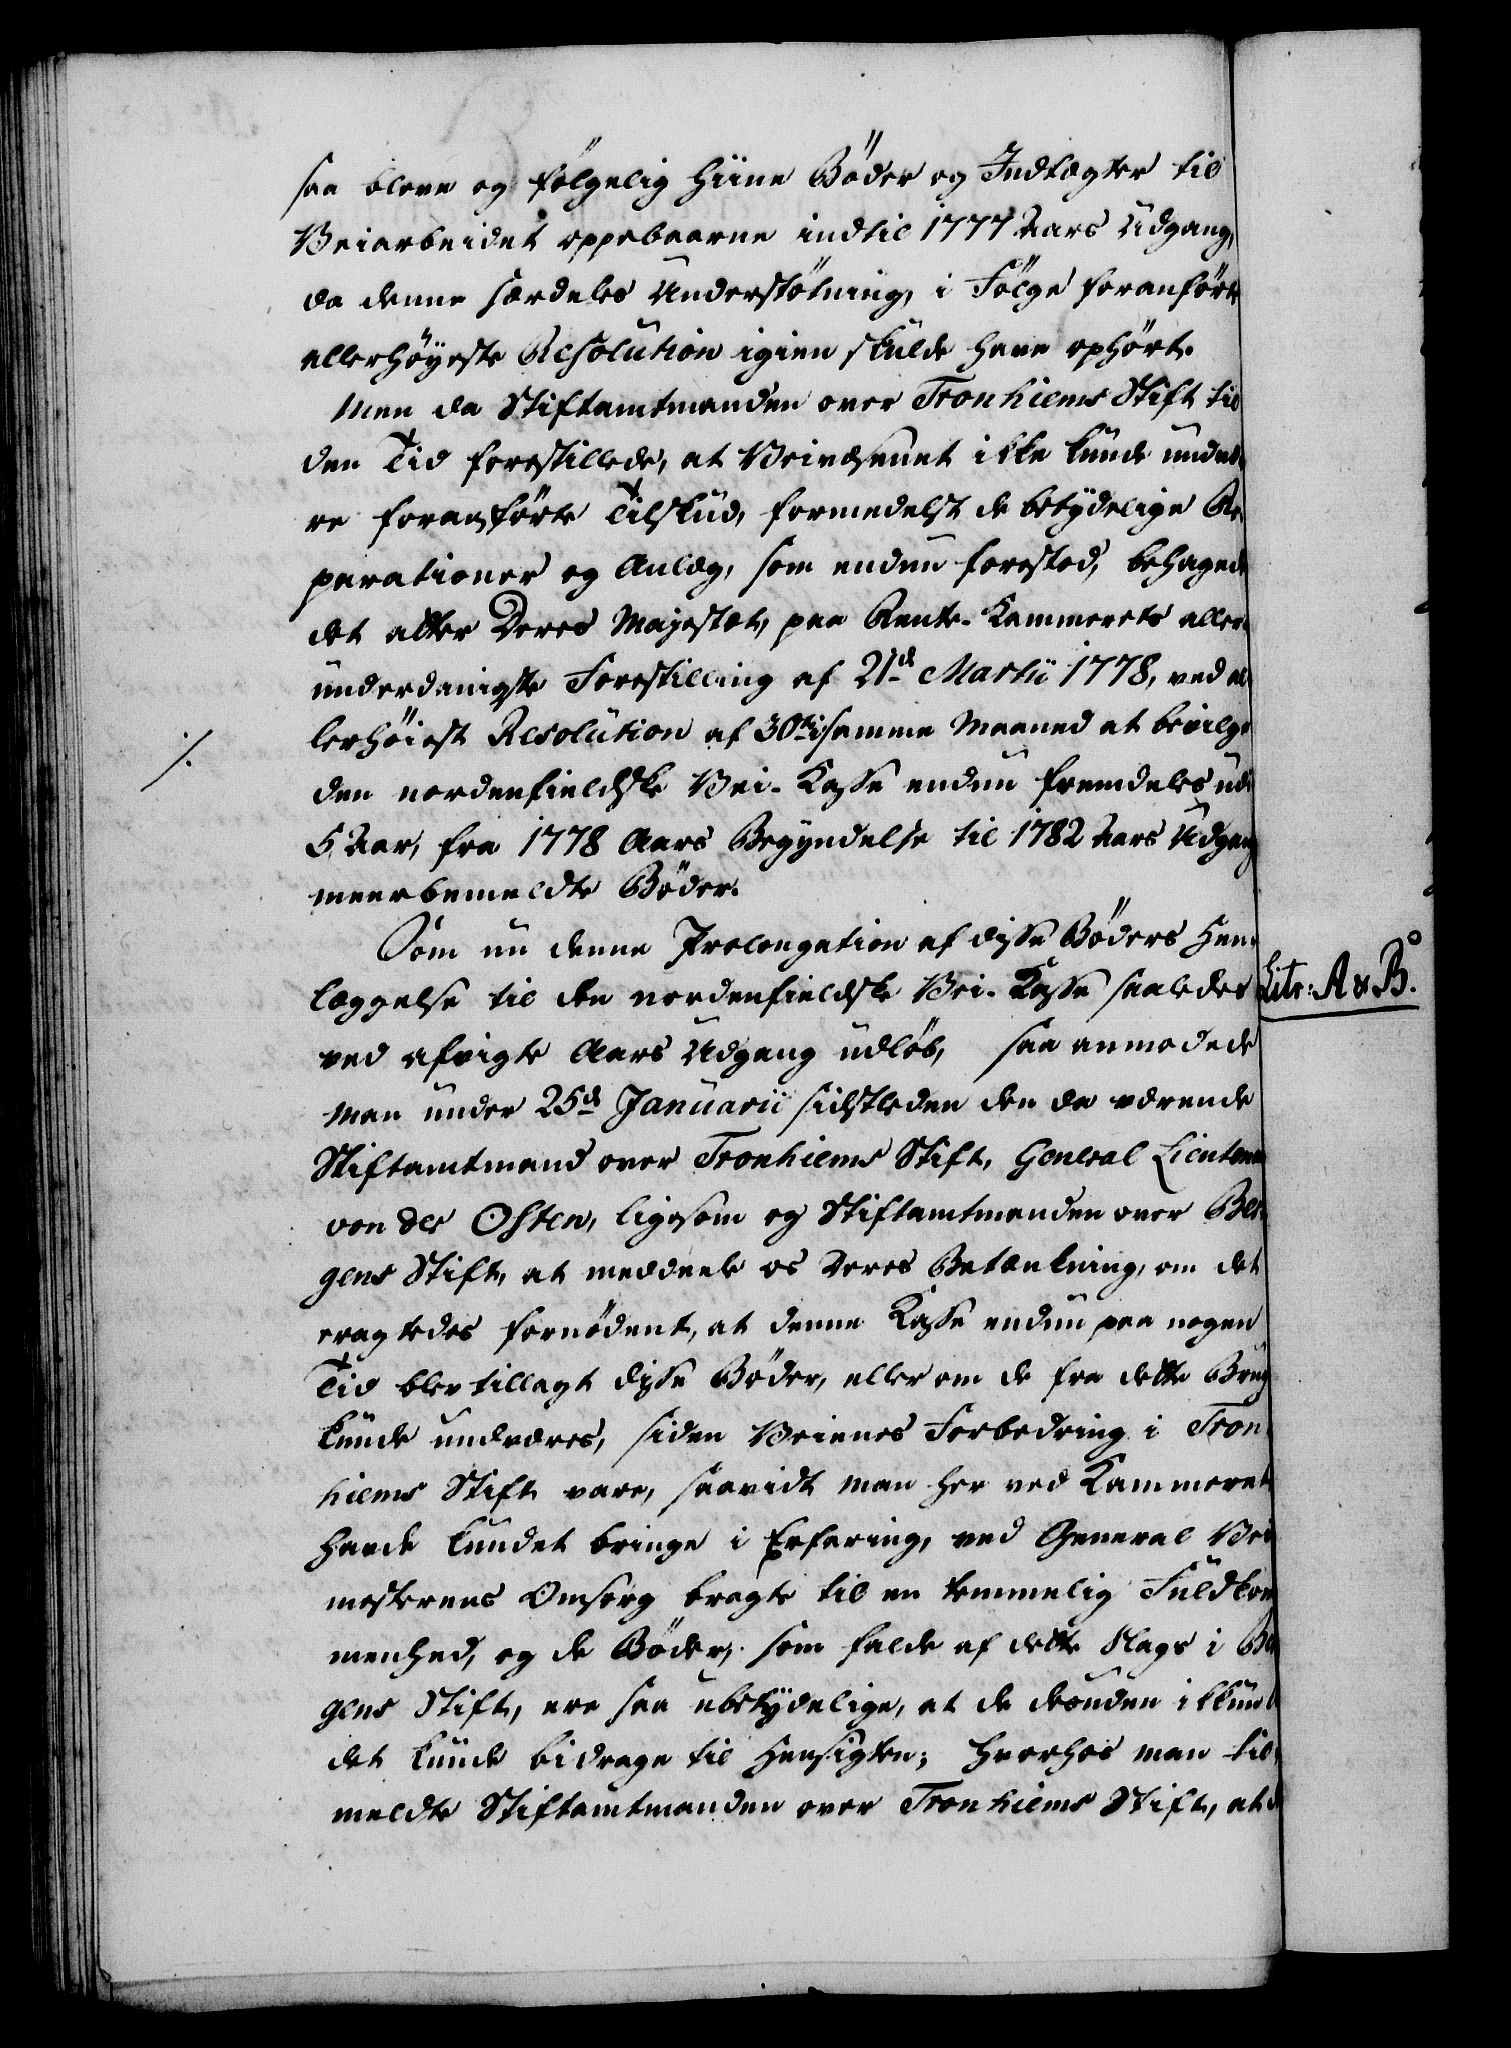 saa bleve og følgelig hiine Bøder og Indtægter til
Veiarbeidet oppebaarne indtil 1777 Aars Udgang,
da denne særdeles Understøtning, i Følge foranførte
allerhøyeste Resolution igien skulde have ophørt.
Men da Stiftamtmanden over Tronhiems Stift til
den Tid forestillede, at Veivæsenet ikke kunde undvæ-
re foranførte Tilskud, formedelst de betydelige Re-
parationer og Anlæg, som endnu forestod, behagede
det atter Deres Majestæt, paa Rente-Kammerets aller-
underdanigste Forestilling af 21de Martii 1778, ved al-
lerhøiest Resolution af 30te samme Maaned at bevilge
den nordenfieldske Vei-Kasse endnu fremdeles udi
5 Aar, fra 1778 Aars Begyndelse til 1782 Aars Udgang
meerbemeldte Bøder.
Som nu denne Prolongation af disse Bøders Hen-
læggelse til den nordenfieldske Vei-Kasse saaledes
ved afvigte Aars Udgang udløb, saa anmodede
Litr: A & B.
man under 25de Januarii sidstleden den da værende
Stiftamtmand over Tronhiems Stift, General Lieutenant
von der Osten, ligesom og Stiftamtmanden over Ber-
gens Stift, at meddeele os Deres Betænkning, om det
eragtedes fornødent, at denne Kasse endnu paa nogen
Tid blev tillagt disse Bøder, eller om de fra dette Brug
kunde undværes, siden Veienes Forbedring i Tron-
hiems Stift vare, saavidt man her ved Kammeret
havde kundet bringe i Erfaring, ved General Vei-
mesterens Omsorg bragte til en temmelig Fuldkom-
menhed, og de Bøder, som falde af dette Slags i Ber-
gens Stift, ere saa ubetydelige, at de desuden ikkun
det kunde bidrage til Hensigten; hvorhos man til-
meldte Stiftamtmanden over Tronhiems Stift, at